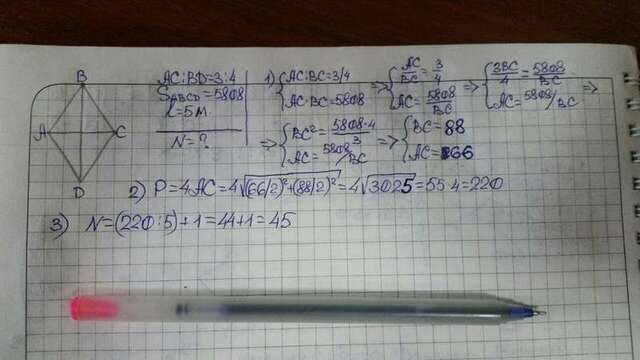 B
A C
D
AC:BD=3:4
S_ABCD=5808
l=5м
N=?
1) {AC:BC=3/4
AC·BC=5808 => {AC/BC=3/4
AC=5808/BC => {3BC/4=5808/BC
AC=5808/BC =>
=> {BC²=5808·4/3
AC=5808/BC => {BC=88
AC=66
2) P=4AC=4√((66/2)²+(88/2)²)=4√3025=55·4=220
3) N=(220:5)+1=44+1=45